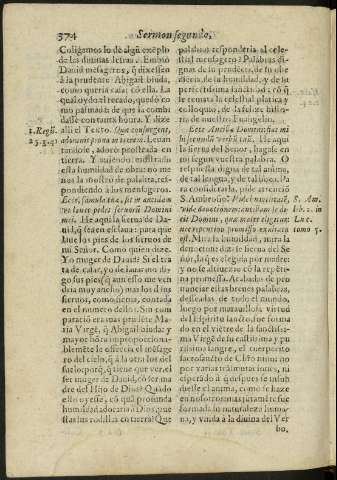 374
Sermon segundo.
Coligamos lo de algũ exẽplo
de las diuinas letras. Embió
Dauid mẽsageros, q̃ dixessẽ
à la prudente Abigail biuda,
como queria casar cõ ella. La
qual oydo el recado, quedó co
mo pasmada de que la comba
dasse con tanta honra. Y dize
alli el Texto. Que consurgens,
adorauit prona in terram. Leuan
tandose, adoro postrada en
tierra. Y auiendo mostrado
esta humildad de obras, no me
nos la mostrò de palabra, res
pondiendo à los mensageros.
Ecce, famula tua, sit in ancillam
vt lauet pedes seruorũ Domini
mei. He aqui la sierua de Da-
uid, q̃ sea en esclaua: para que
laue los pies de los sieruos de
mi Señor. Como quien dize.
Yo muger de Dauid? Si el tra
ta de casar, yo de lauar mis
sus pies
mas los
sieruos, como sierua, contada
en el numero dellos. Sin com
paraciõ era mas prudẽte Ma
ria Virgẽ, q̃ Abigail biuda: y
mayor sin
blemẽte le offrecia el mẽsage
ro del cielo, q̃ à la otra los del
suelo: porq̃, que tiene que ver, el
ser muger de Dauid, cõ ser ma
dre del Hijo de Dios? Quãdo
ello oyesse, cõ quã profunda
humildad adoraria à Dios, que
las rodillas en tierra? Que
1. Regũ.
25.g.41
palabras responderia al celes-
tial mensagero? Palabras di-
gnas de su prudẽcia, de su obe
diẽcia, de su humildad, y de su
perfectissima sanctidad: cõ q̃
se remata la celestial platica
y colloquio, de la qual oy haze
relacion el sagrado Euangelio.
Ecce Ancilla Domini, fiat mi
hi secundũ verbũ tuũ. He aqui
la sierua del Señor, hagase en
mi segun vuestra palabra. O
respuesta digna de tal animo,
de tal lengua, y de tal boca. Pa
ra cuya consideraciõ, pide atenciõ
S. Ambrosio: Vide humilitatẽ,
vide deuotionem: ancillam se di-
cit Domini, quæ mater eligitur:
nec repentino promisso exaltata
est. Mira la humildad, mira la
deuocion: dize se sierua del Se
ñor, la q̃ es elegida por madre:
y no se altiuezce cõ la repẽti-
na promessa. Acabadas de pro
nunciar estas breues palabras,
desseadas de todo el mundo,
luego por marauillosa virtud
del Espiritu sancto fue forma
do en el viẽtre de la sanctissi-
ma Virgẽ de su castissima y pu
rissima sangre, el cuerpecito
sacrosancto de Christo nuestro
no por varias trasmutaciones, ni
esperado à q̃ despues se infun
diesse el anima, como se haze
en nosotros: mas juntamẽte fue
formada su naturaleza huma-
na, y vnida à la diuina del Ver
bo,
S. Am.
lib. 2. in
Luc.
tomo 5.